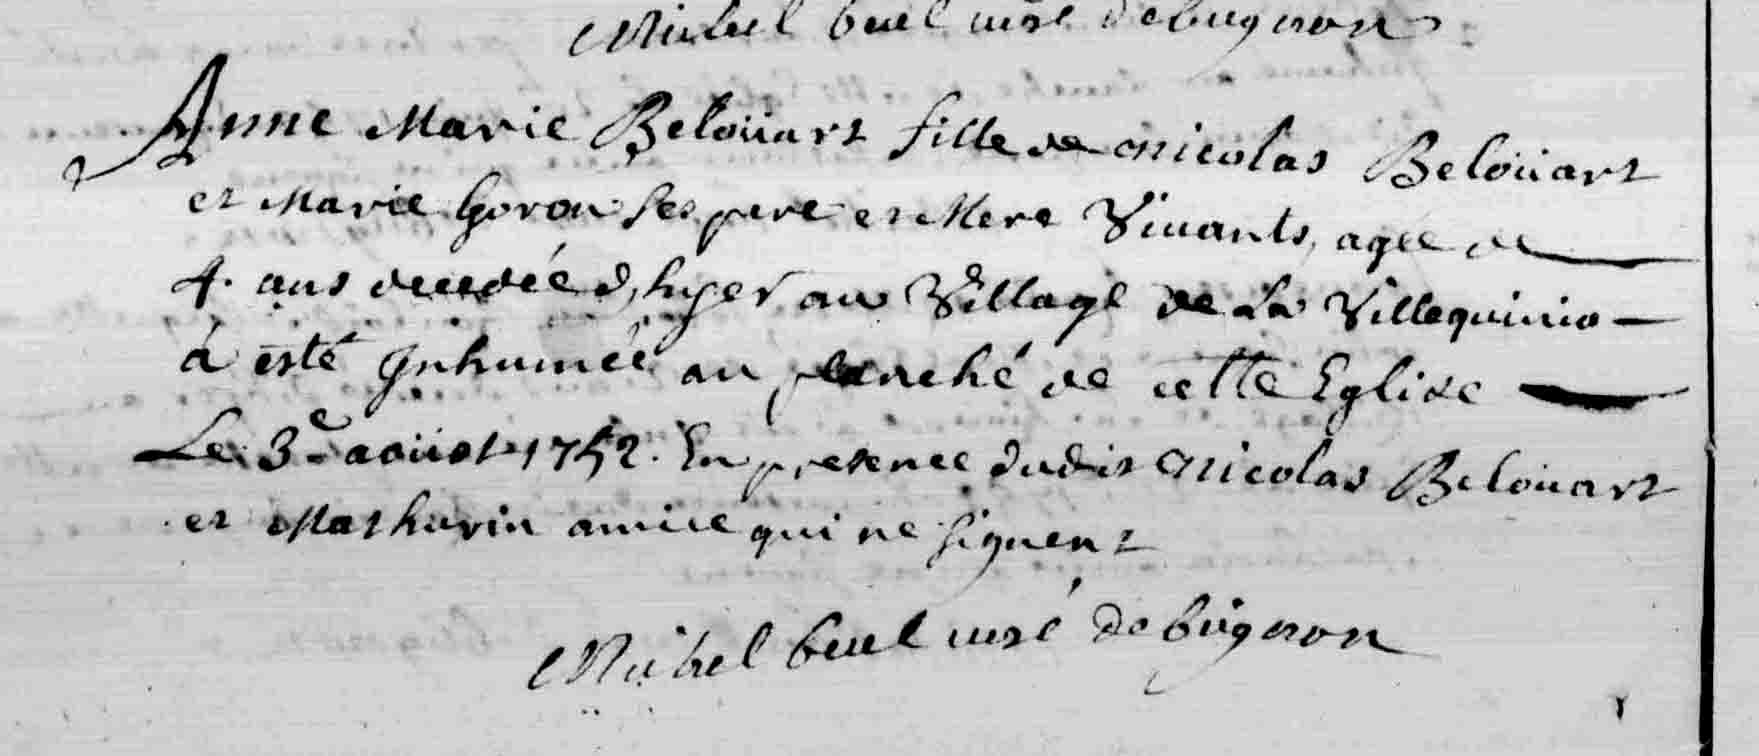 Michel buel curé de bugnon
Anne Marie Beloüart fille de Nicolas Beloüart
et Marie Goron ses pere et Mere Vivants, agée de
4. ans decedée d'hyer au Village de La Villequinio
à esté Inhumée au de cette Eglise
Le 3e aoüst 1752. En presence dudit Nicolas Beloüart
et Mathurin amice qui ne signent
Michel buel curé de bugnon